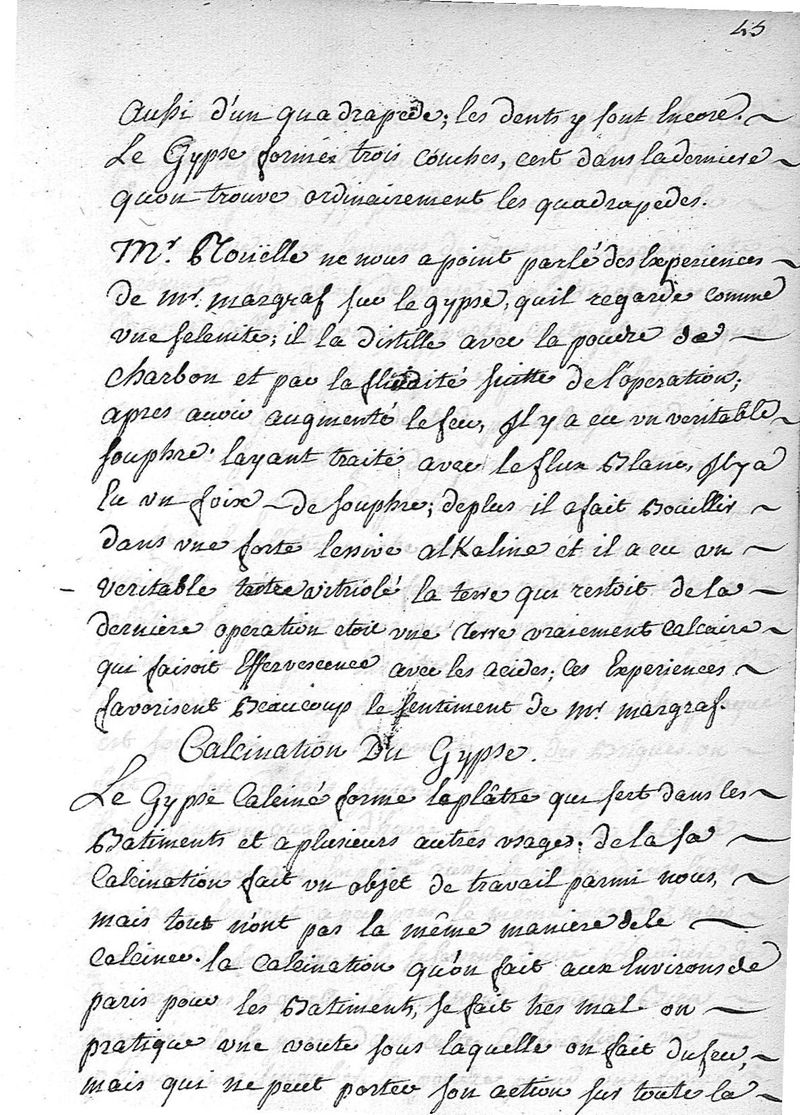 45
aussi d'un quadrapede; les dents y sont Encore.
Le Gypse formée trois couches, c'est dans la derniere
qu'on trouve ordinairement les quadrapedes.
Mr. Roüelle ne nous a point parlé des Experiences
de mr. margraf sur le gypse, qu'il regarde comme
vne selenite; il la distille avec la poudre de
charbon et par la fluidité suitte de l'operation;
apres avoir augmenté le feu, Il y a eu vn veritable
souphre. layant traité avec le flux Blanc, Il y a
Eu vn foix de souphre; deplus il a fait Bouillir
dans vne forte lessive alKaline et il a eu un
veritable tartre vitriolé la terre qui restoit de la
derniere operation etoit vne Terre vraiement calcaire
qui faisoit Effervescence avec les acides; ces Experiences
favorisent Beaucoup le sentiment de mr margraf.
Calcination Du Gypse.
Le Gypse Calciné forme le plâtre qui sert dans les
Batiments et a plusieurs autres vsages. de la sa
Calcination fait vn objet de travail parmi nous,
mais tout n'ont pas la même maniere de le
Calciner. la Calcination qu'on fait aux Environs de
paris pour les Batiments, se fait tres mal on
pratique vne voute sous laquelle on fait du feu,
mais qui ne peut porter son action sur toute la